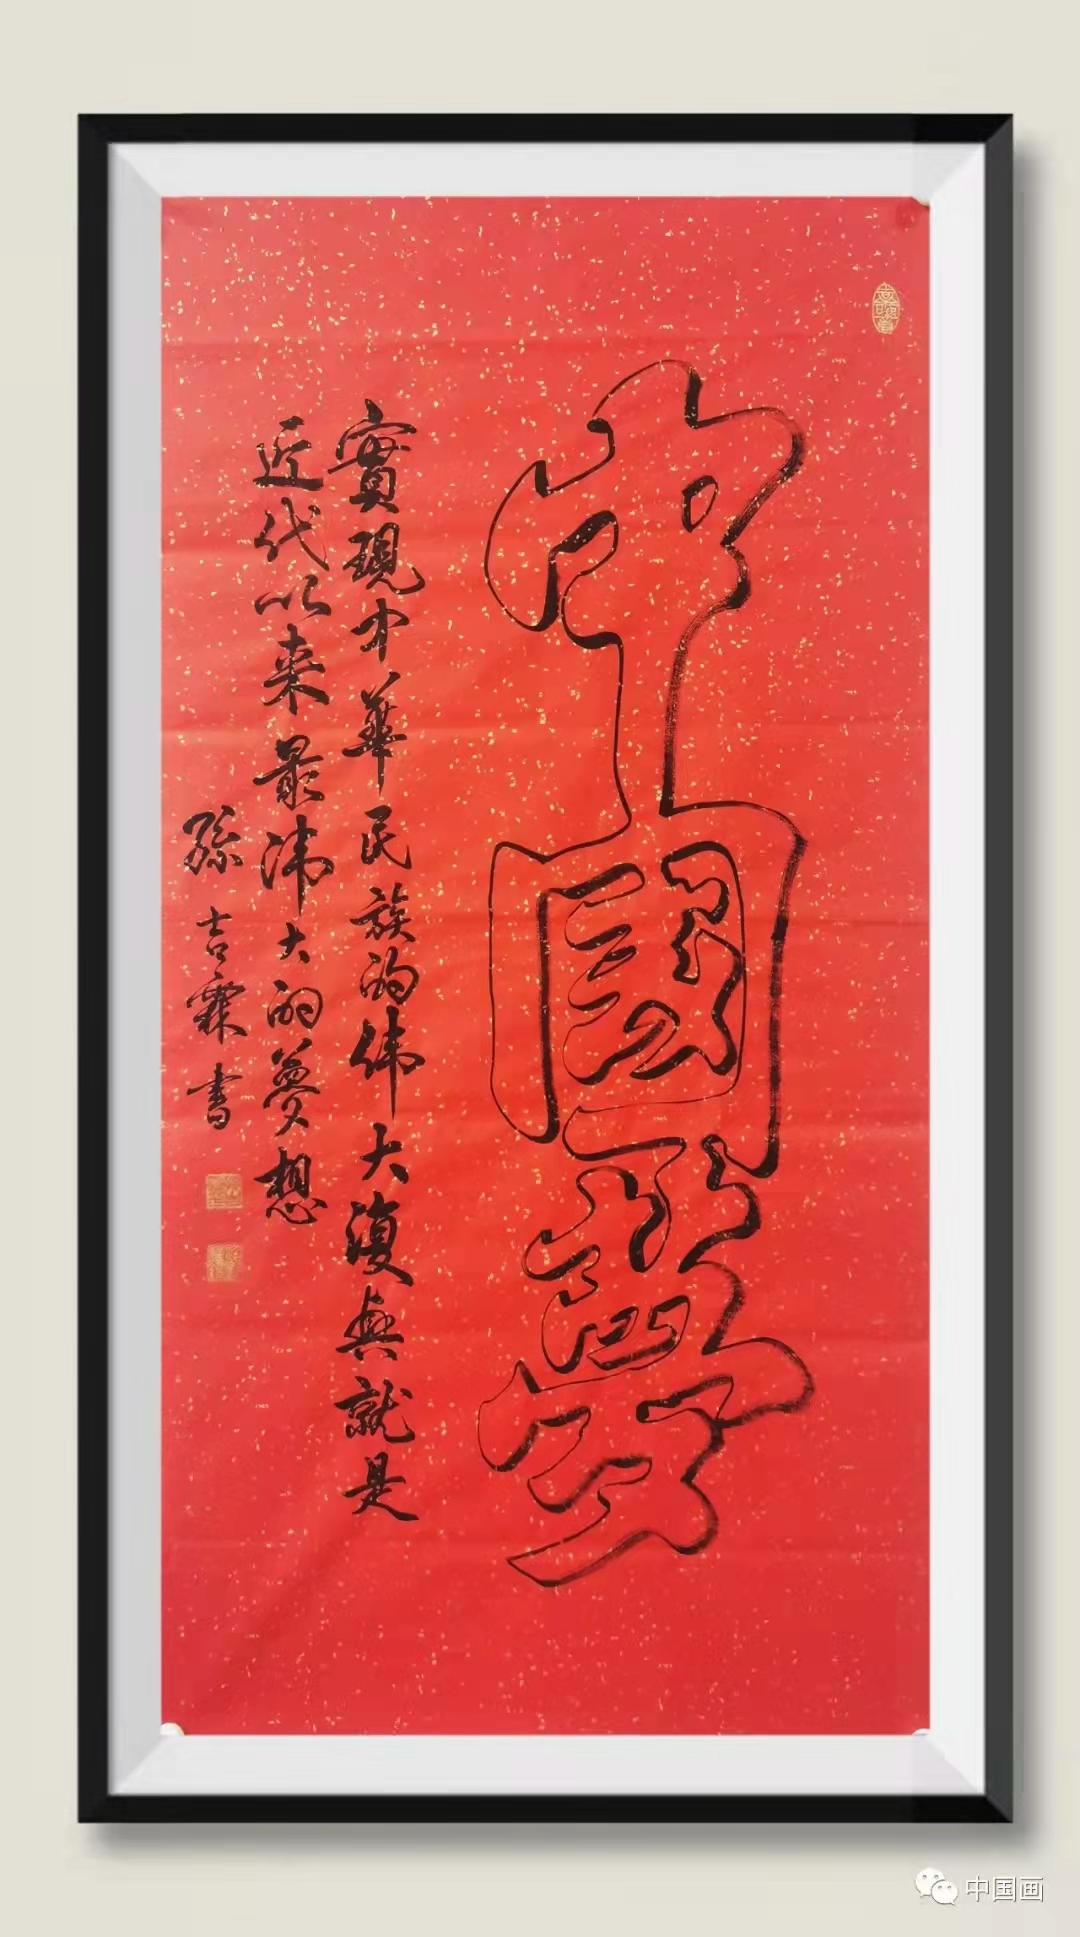 中國夢
實現中華民族的伟大復興就是
近代以来最沣大的夢想
孫吉霖書
中国画